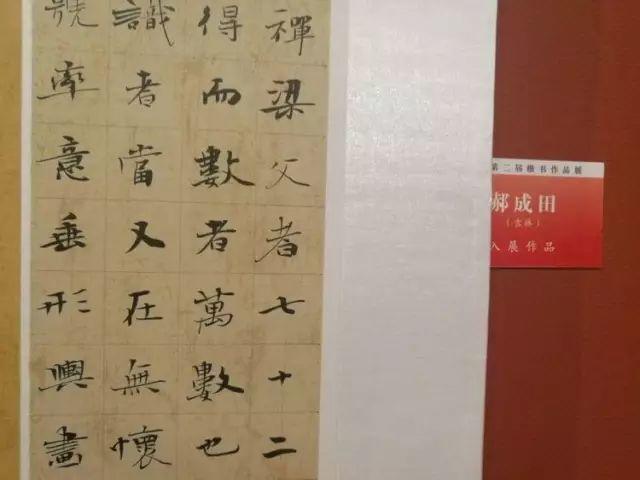 禪梁父者七十二
得而數者萬數也
識者當又在無懷
號率意垂形興畫
第二届楷书作品展
郝成田
入展作品